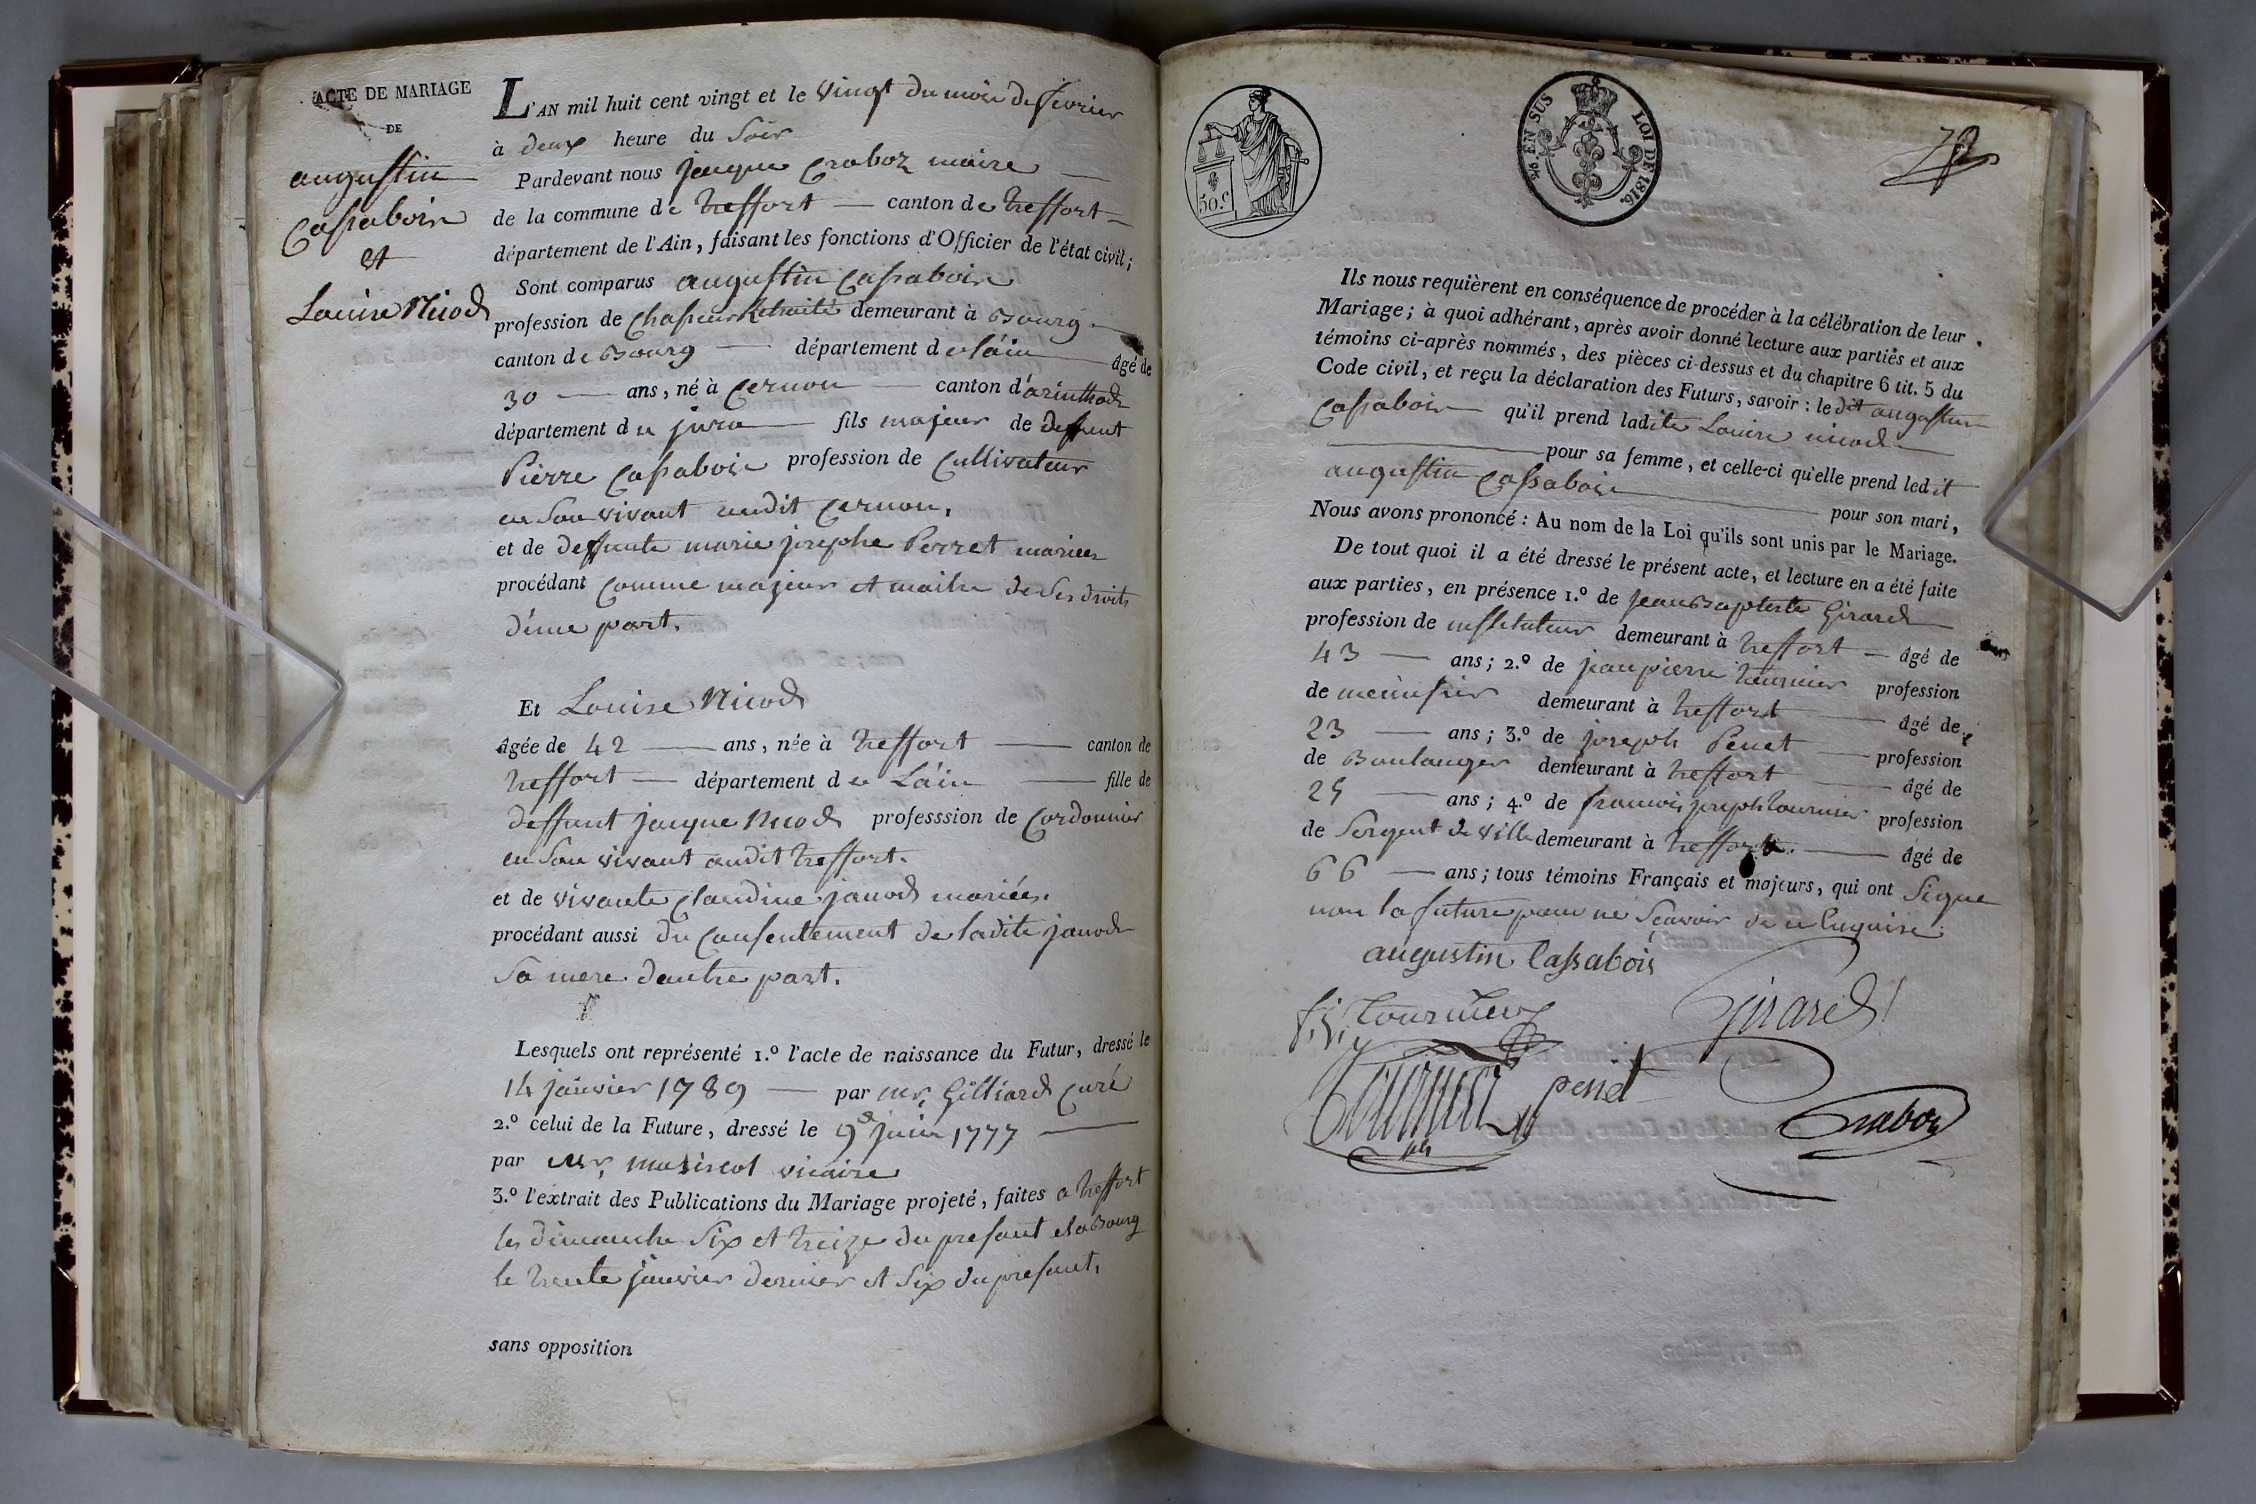 ACTE DE MARIAGE
DE
augustin
Cassabois
et
Louise Nicod
L'AN mil huit cent vingt et le vingt du mois de fevrier
à deux heure du soir
Pardevant nous jacque Craboz maire
de la commune de treffort canton de treffort
département de l'Ain, faisant les fonctions d'Officier de l'état civil;
Sont comparus augustin Cassabois
profession de Chasseur Retraité demeurant à Bourg
canton de Bourg département de l'ain âgé de
30 ans, né à Cernon canton d'arinthod
département du jura fils majeur de deffunt
Pierre Cassabois profession de Cultivateur
en son vivant audit Cernon,
et de deffunte marie josephe Perret mariées
procédant comme majeur et maitre de ses droits
d'une part.
Et Louise Nicod
âgée de 42 ans, née à treffort canton de
treffort département de L'ain fille de
deffunt jacque Nicod professsion de Cordonnier
en son vivant audit treffort.
et de vivante claudine janod mariées.
procédant aussi du Consentement de ladite janod
sa mere d'autre part.
Lesquels ont représenté 1.º l'acte de naissance du Futur, dressé le
14 janvier 1789 par mr. Gilliard Curé
2.º celui de la Future, dressé le 9 juin 1777
par Mr. vicaire
3.º l'extrait des Publications du Mariage projeté, faites a treffort
les dimanche six et treize du present et a Bourg
le trente janvier dernier et six du present,
sans opposition
50.c
26. EN SUS
LOI DE 1816.
Ils nous requièrent en conséquence de procéder à la célébration de leur
Mariage; à quoi adhérant, après avoir donné lecture aux parties et aux
témoins ci-après nommés, des pièces ci-dessus et du chapitre 6 tit. 5 du
Code civil, et reçu la déclaration des Futurs, savoir: le dit augustin
Cassabois qu'il prend ladite Louise nicod
pour sa femme, et celle-ci qu'elle prend ledit
augustin Cassabois pour son mari,
Nous avons prononcé: Au nom de la Loi qu'ils sont unis par le Mariage.
De tout quoi il a été dressé le présent acte, et lecture en a été faite
aux parties, en présence 1.º de jean Baptiste Girard
profession de instituteur demeurant à treffort âgé de
43 ans; 2.º de jean pierre tournier profession
de menusier demeurant à treffort âgé de
23 ans; 3.º de joseph Penet profession
de Boulanger demeurant à treffort âgé de
25 ans; 4.º de francois joseph tournier profession
de Sergent de ville demeurant à treffort. âgé de
66 ans; tous témoins Français et majeurs, qui ont signe
non la future pour ne sçavoir de ce Enquise.
augustin Cassabois
f. j. tournier
Girard
tournier fils
penet
Craboz